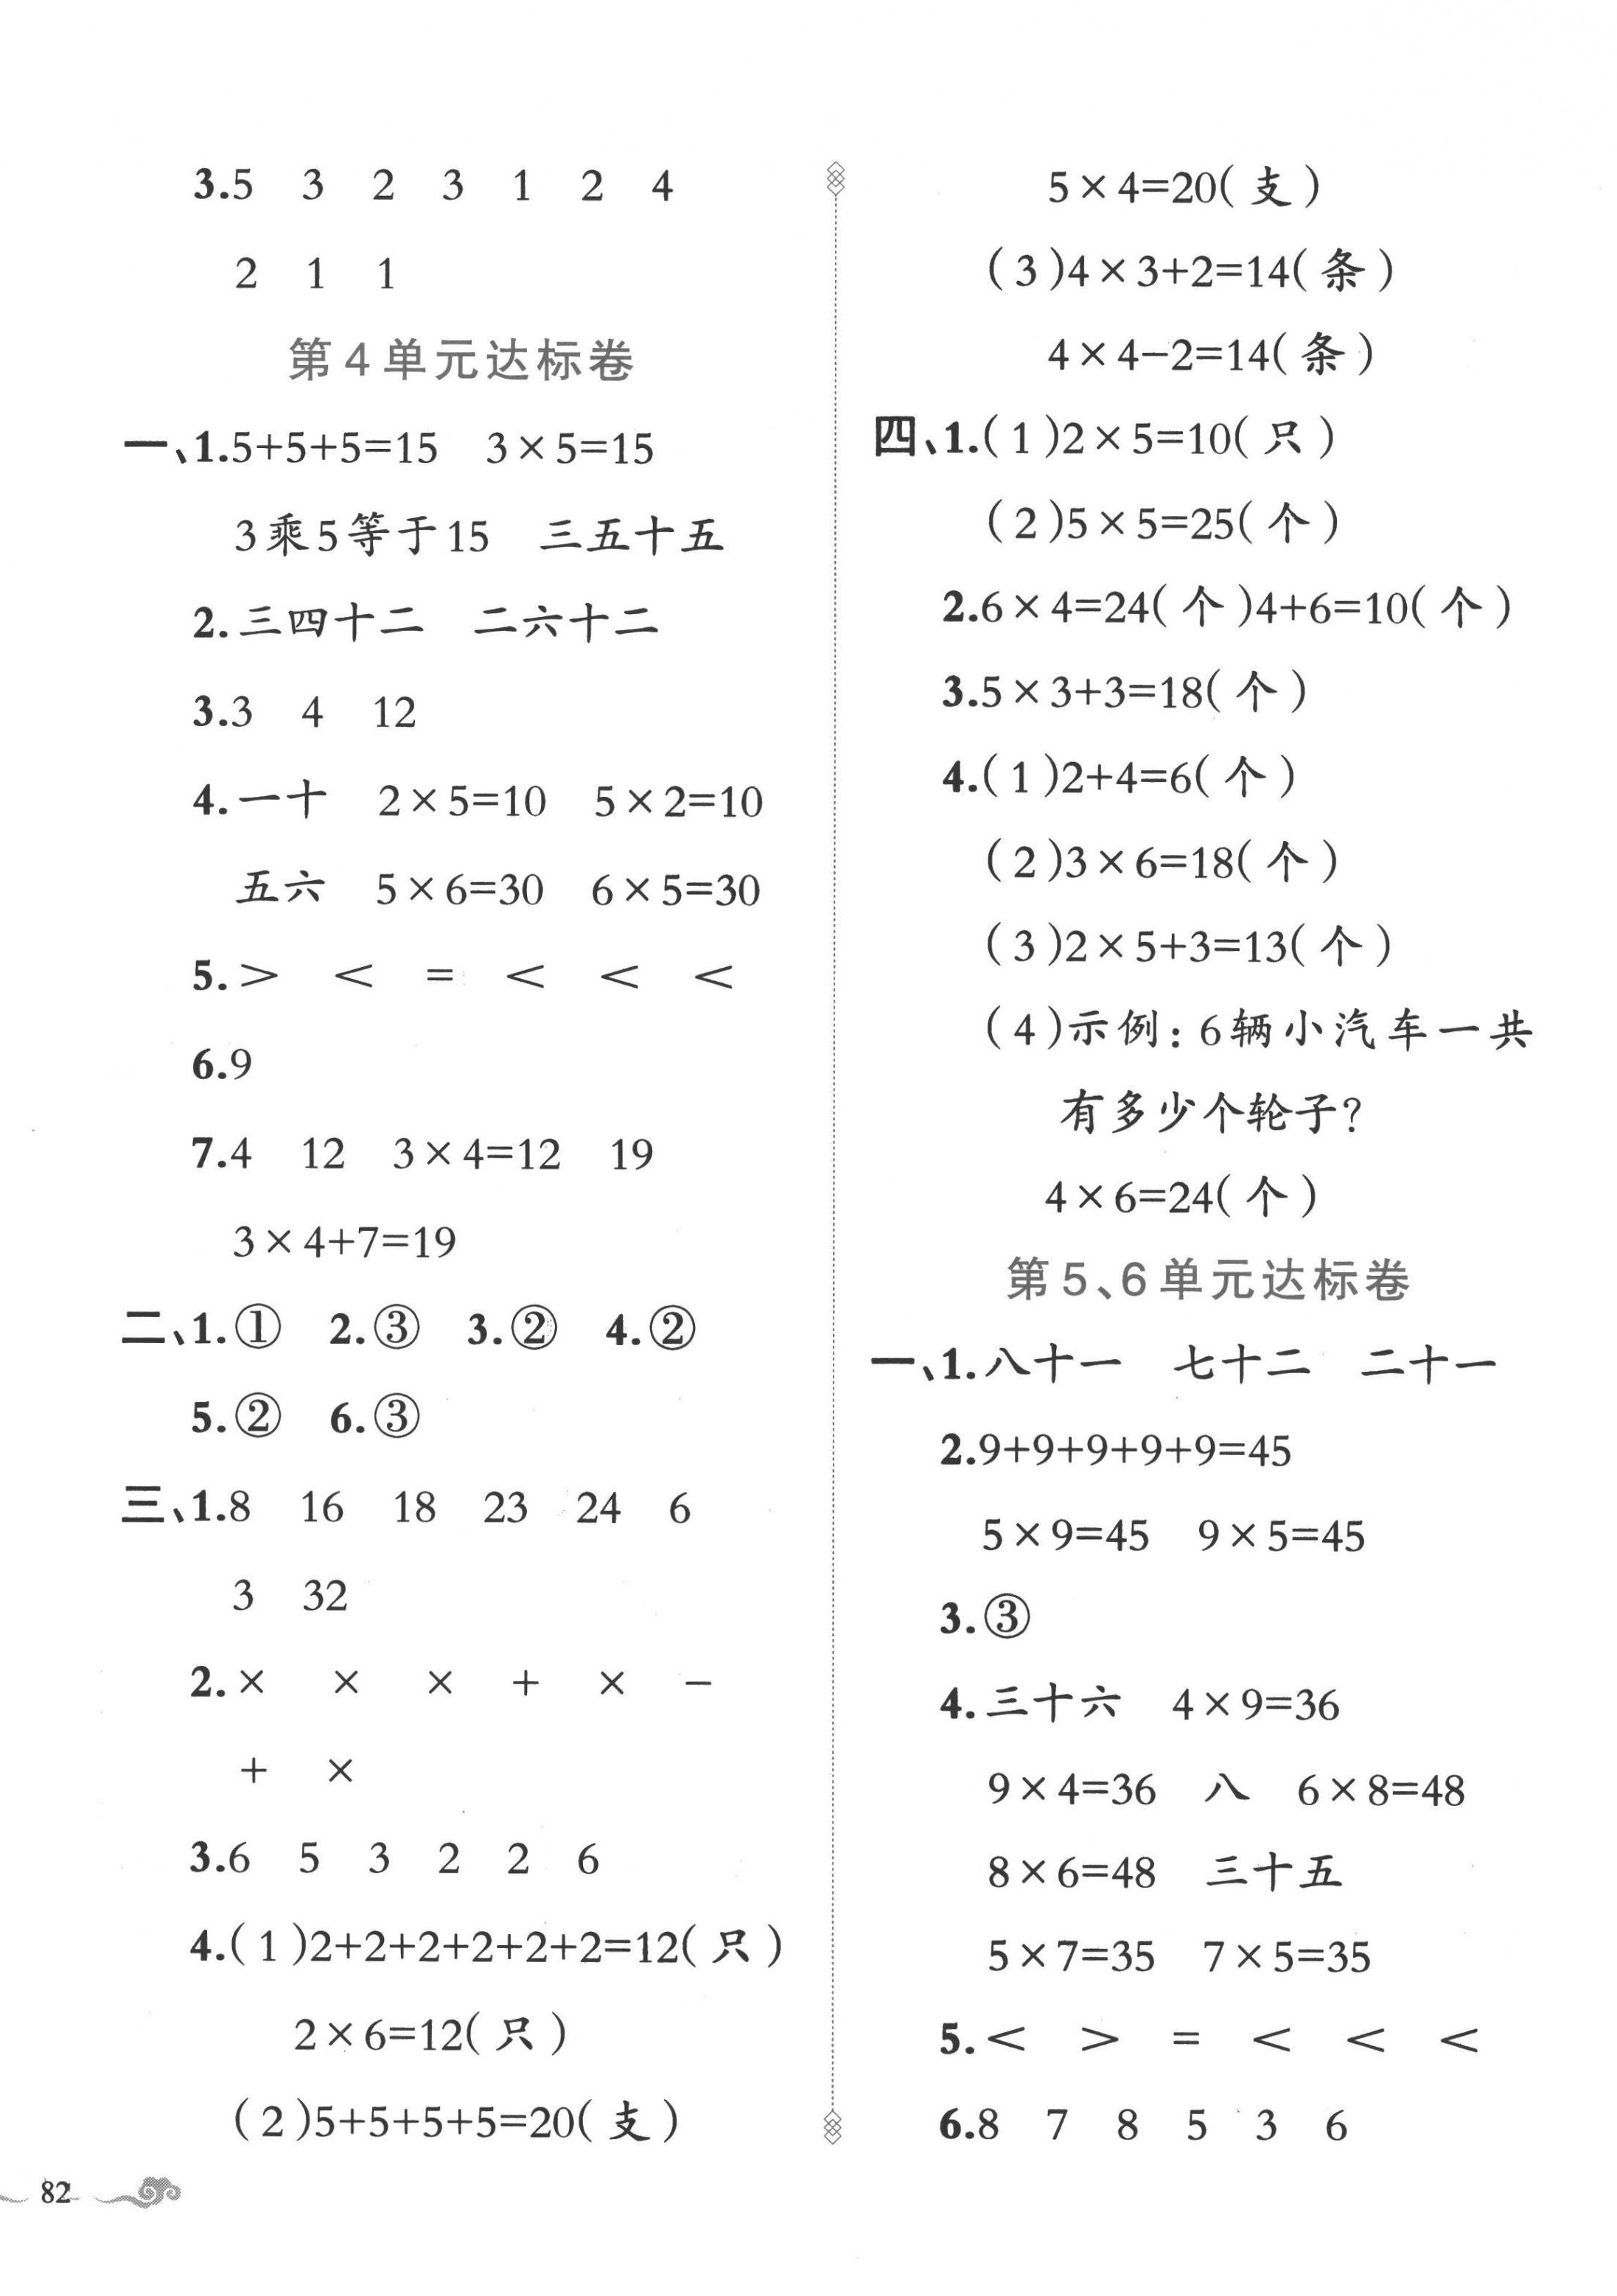 3.5 3 2 3 1 2 4
2 1 1
第4单元达标卷
一、1.5+5+5=15 3×5=15
3乘5等于15 三五十五
2.三四十二 二六十二
3.3 4 12
4.一十 2×5=10 5×2=10
五六 5×6=30 6×5=30
5.> < = < < <
6.9
7.4 12 3×4=12 19
3×4+7=19
二、1.① 2.③ 3.② 4.②
5.② 6.③
三、1.8 16 18 23 24 6
3 32
2.× × × + × −
+ ×
3.6 5 3 2 2 6
4.(1)2+2+2+2+2+2=12(只)
2×6=12(只)
(2)5+5+5+5=20(支)
5×4=20(支)
(3)4×3+2=14(条)
4×4−2=14(条)
四、1.(1)2×5=10(只)
(2)5×5=25(个)
2.6×4=24(个)4+6=10(个)
3.5×3+3=18(个)
4.(1)2+4=6(个)
(2)3×6=18(个)
(3)2×5+3=13(个)
(4)示例:6辆小汽车一共
有多少个轮子?
4×6=24(个)
第5、6单元达标卷
一、1.八十一 七十二 二十一
2.9+9+9+9+9=45
5×9=45 9×5=45
3.③
4.三十六 4×9=36
9×4=36 八 6×8=48
8×6=48 三十五
5×7=35 7×5=35
5.< > = < < <
6.8 7 8 5 3 6
82